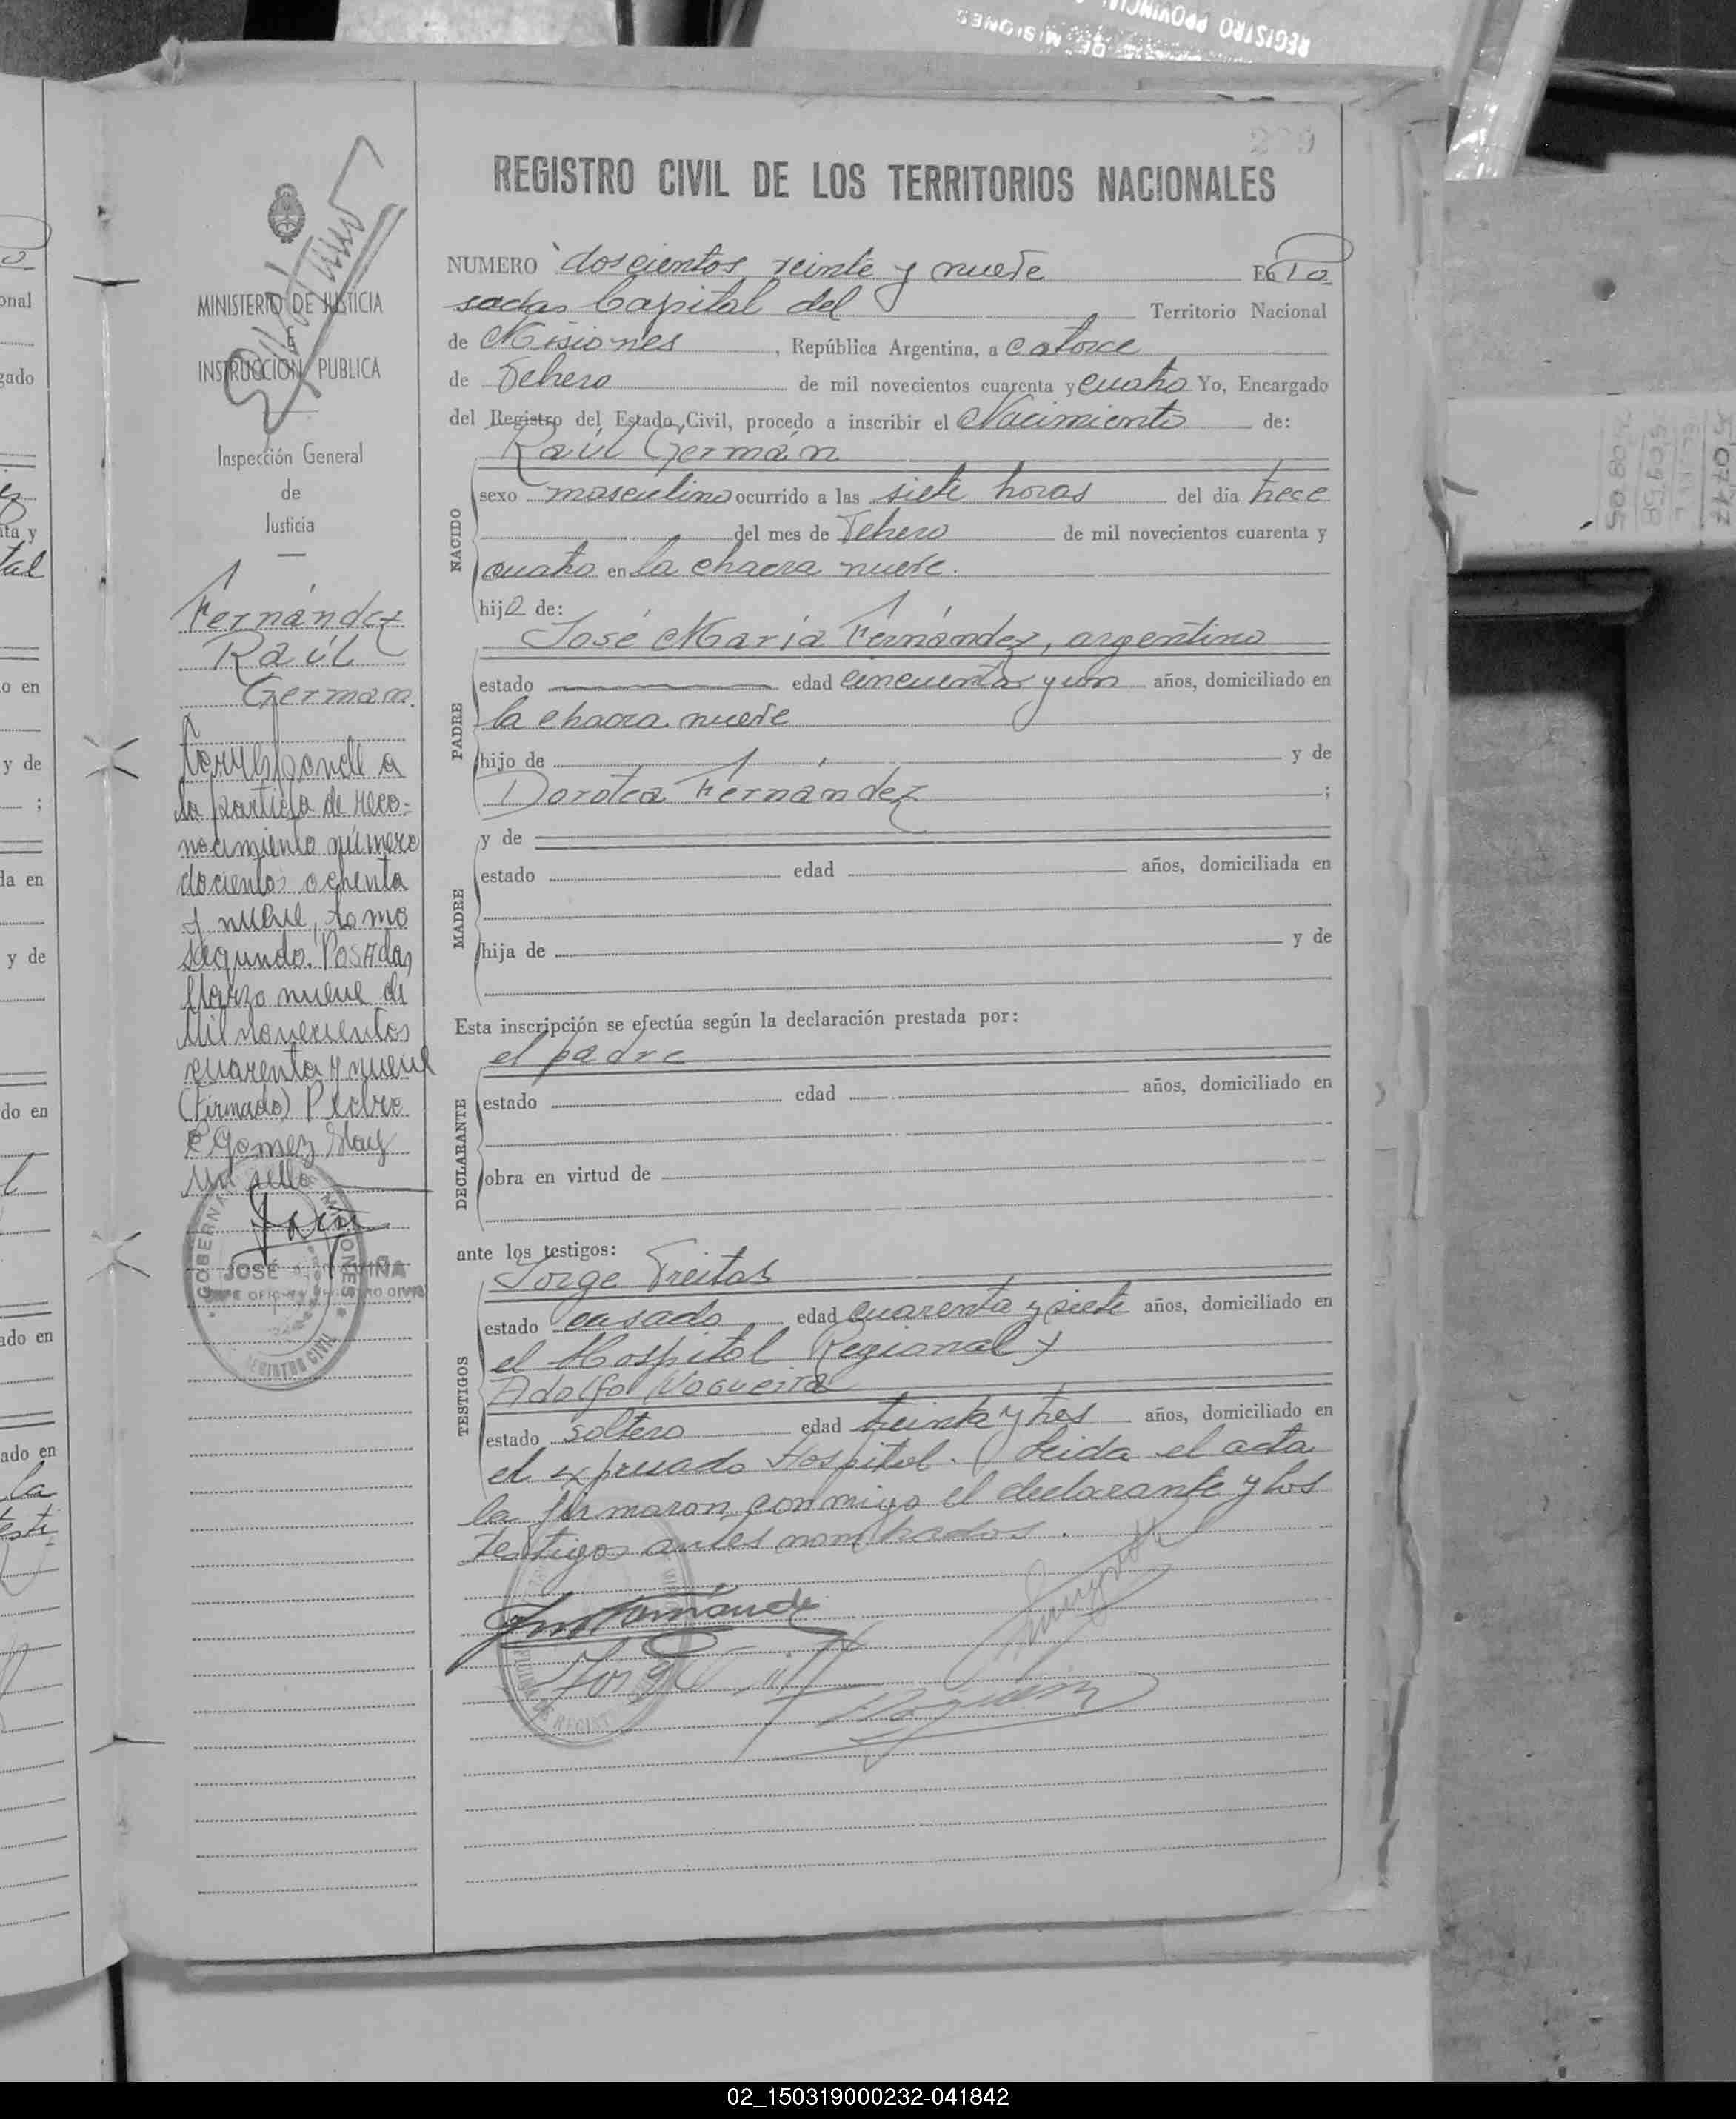 REGISTRO PROVINCIAL
DE MISIONES
229
REGISTRO CIVIL DE LOS TERRITORIOS NACIONALES
NUMERO doscientos veinte y nueve En Po
sadas Capital del Territorio Nacional
de Misiones, República Argentina, a catorce
de Febrero de mil novecientos cuarenta y cuatro Yo, Encargado
del Registro del Estado Civil, procedo a inscribir el Nacimiento de:
NACIDO
Raúl Germán
sexo masculino ocurrido a las siete horas del día trece
del mes de Febrero de mil novecientos cuarenta y
cuatro en la chacra nueve.
hijo de:
PADRE
José María Fernández, argentino
estado edad cincuenta y un años, domiciliado en
la chacra nueve
hijo de y de
Dorotea Fernández ;
MADRE
y de
estado edad años, domiciliada en
hija de y de
Esta inscripción se efectúa según la declaración prestada por:
DECLARANTE
el padre
estado edad años, domiciliado en
obra en virtud de
ante los testigos:
TESTIGOS
Jorge Freitas
estado casado edad cuarenta y siete años, domiciliado en
el Hospital Regional y
Adolfo Noguerra
estado soltero edad treinta y tres años, domiciliado en
el expresado Hospital. Leida el acta
la firmaron conmigo el declarante y los
testigos antes nombrados.
MINISTERIO DE JUSTICIA
E
INSTRUCCION PUBLICA
Inspección General
de
Justicia
Fernández
Raúl
German.
Corresponde a
la partida de reco-
nocimiento número
docientos ochenta
y nueve, tomo
segundo. Posadas,
Marzo nueve de
mil novecientos
cuarenta y nueve
(Firmado) Pedro
E Gomez Hay
un sello
GOBERNA MISIONES
JOSÉ VIÑA
JEFE OFICINA REGISTRO CIVIL
REGISTRO CIVIL
02_150319000232-041842